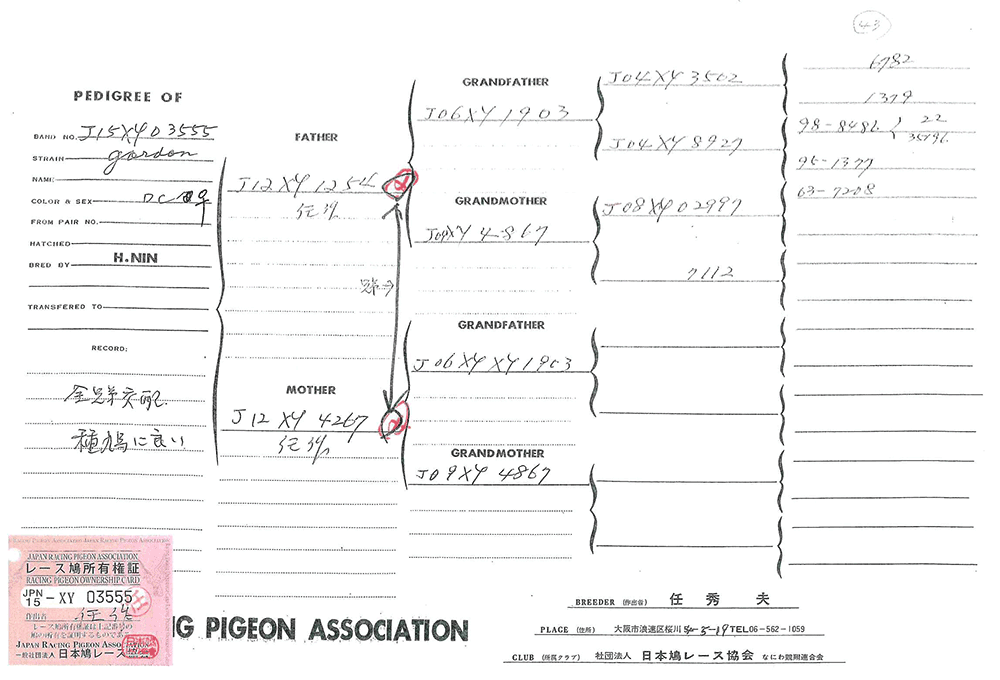 43
PEDIGREE OF
BAND NO. J15XY03555
STRAIN gordon
NAME
COLOR & SEX DC ♀
FROM PAIR NO.
HATCHED
BRED BY H.NIN
TRANSFERED TO
RECORD:
全兄弟交配
種鳩に良い
FATHER
J12XY 1254
MOTHER
J12 XY 4267
GRANDFATHER
J06XY 1903
GRANDMOTHER
J09XY 4867
GRANDFATHER
J06XY XY1903
GRANDMOTHER
J09XY 4867
J04XY 3502
J04XY 8927
J08XY02997
7112
6782
1379
98-8486
22
35796
95-1377
63-7208
JAPAN RACING PIGEON ASSOCIATION
レース鳩所有権証
RACING PIGEON OWNERSHIP CARD
JPN
15-XY 03555
作出者
レース鳩所有権証は上記番号の
鳩の所有を証明するものである
JAPAN RACING PIGEON ASSOCIATION
一般社団法人 日本鳩レース協会
NG PIGEON ASSOCIATION
BREEDER (作出者) 任 秀 夫
PLACE (住所) 大阪市浪速区桜川 4-5-19 TEL06-562-1059
CLUB (所属クラブ) 社団法人 日本鳩レース協会 なにわ競翔連合会